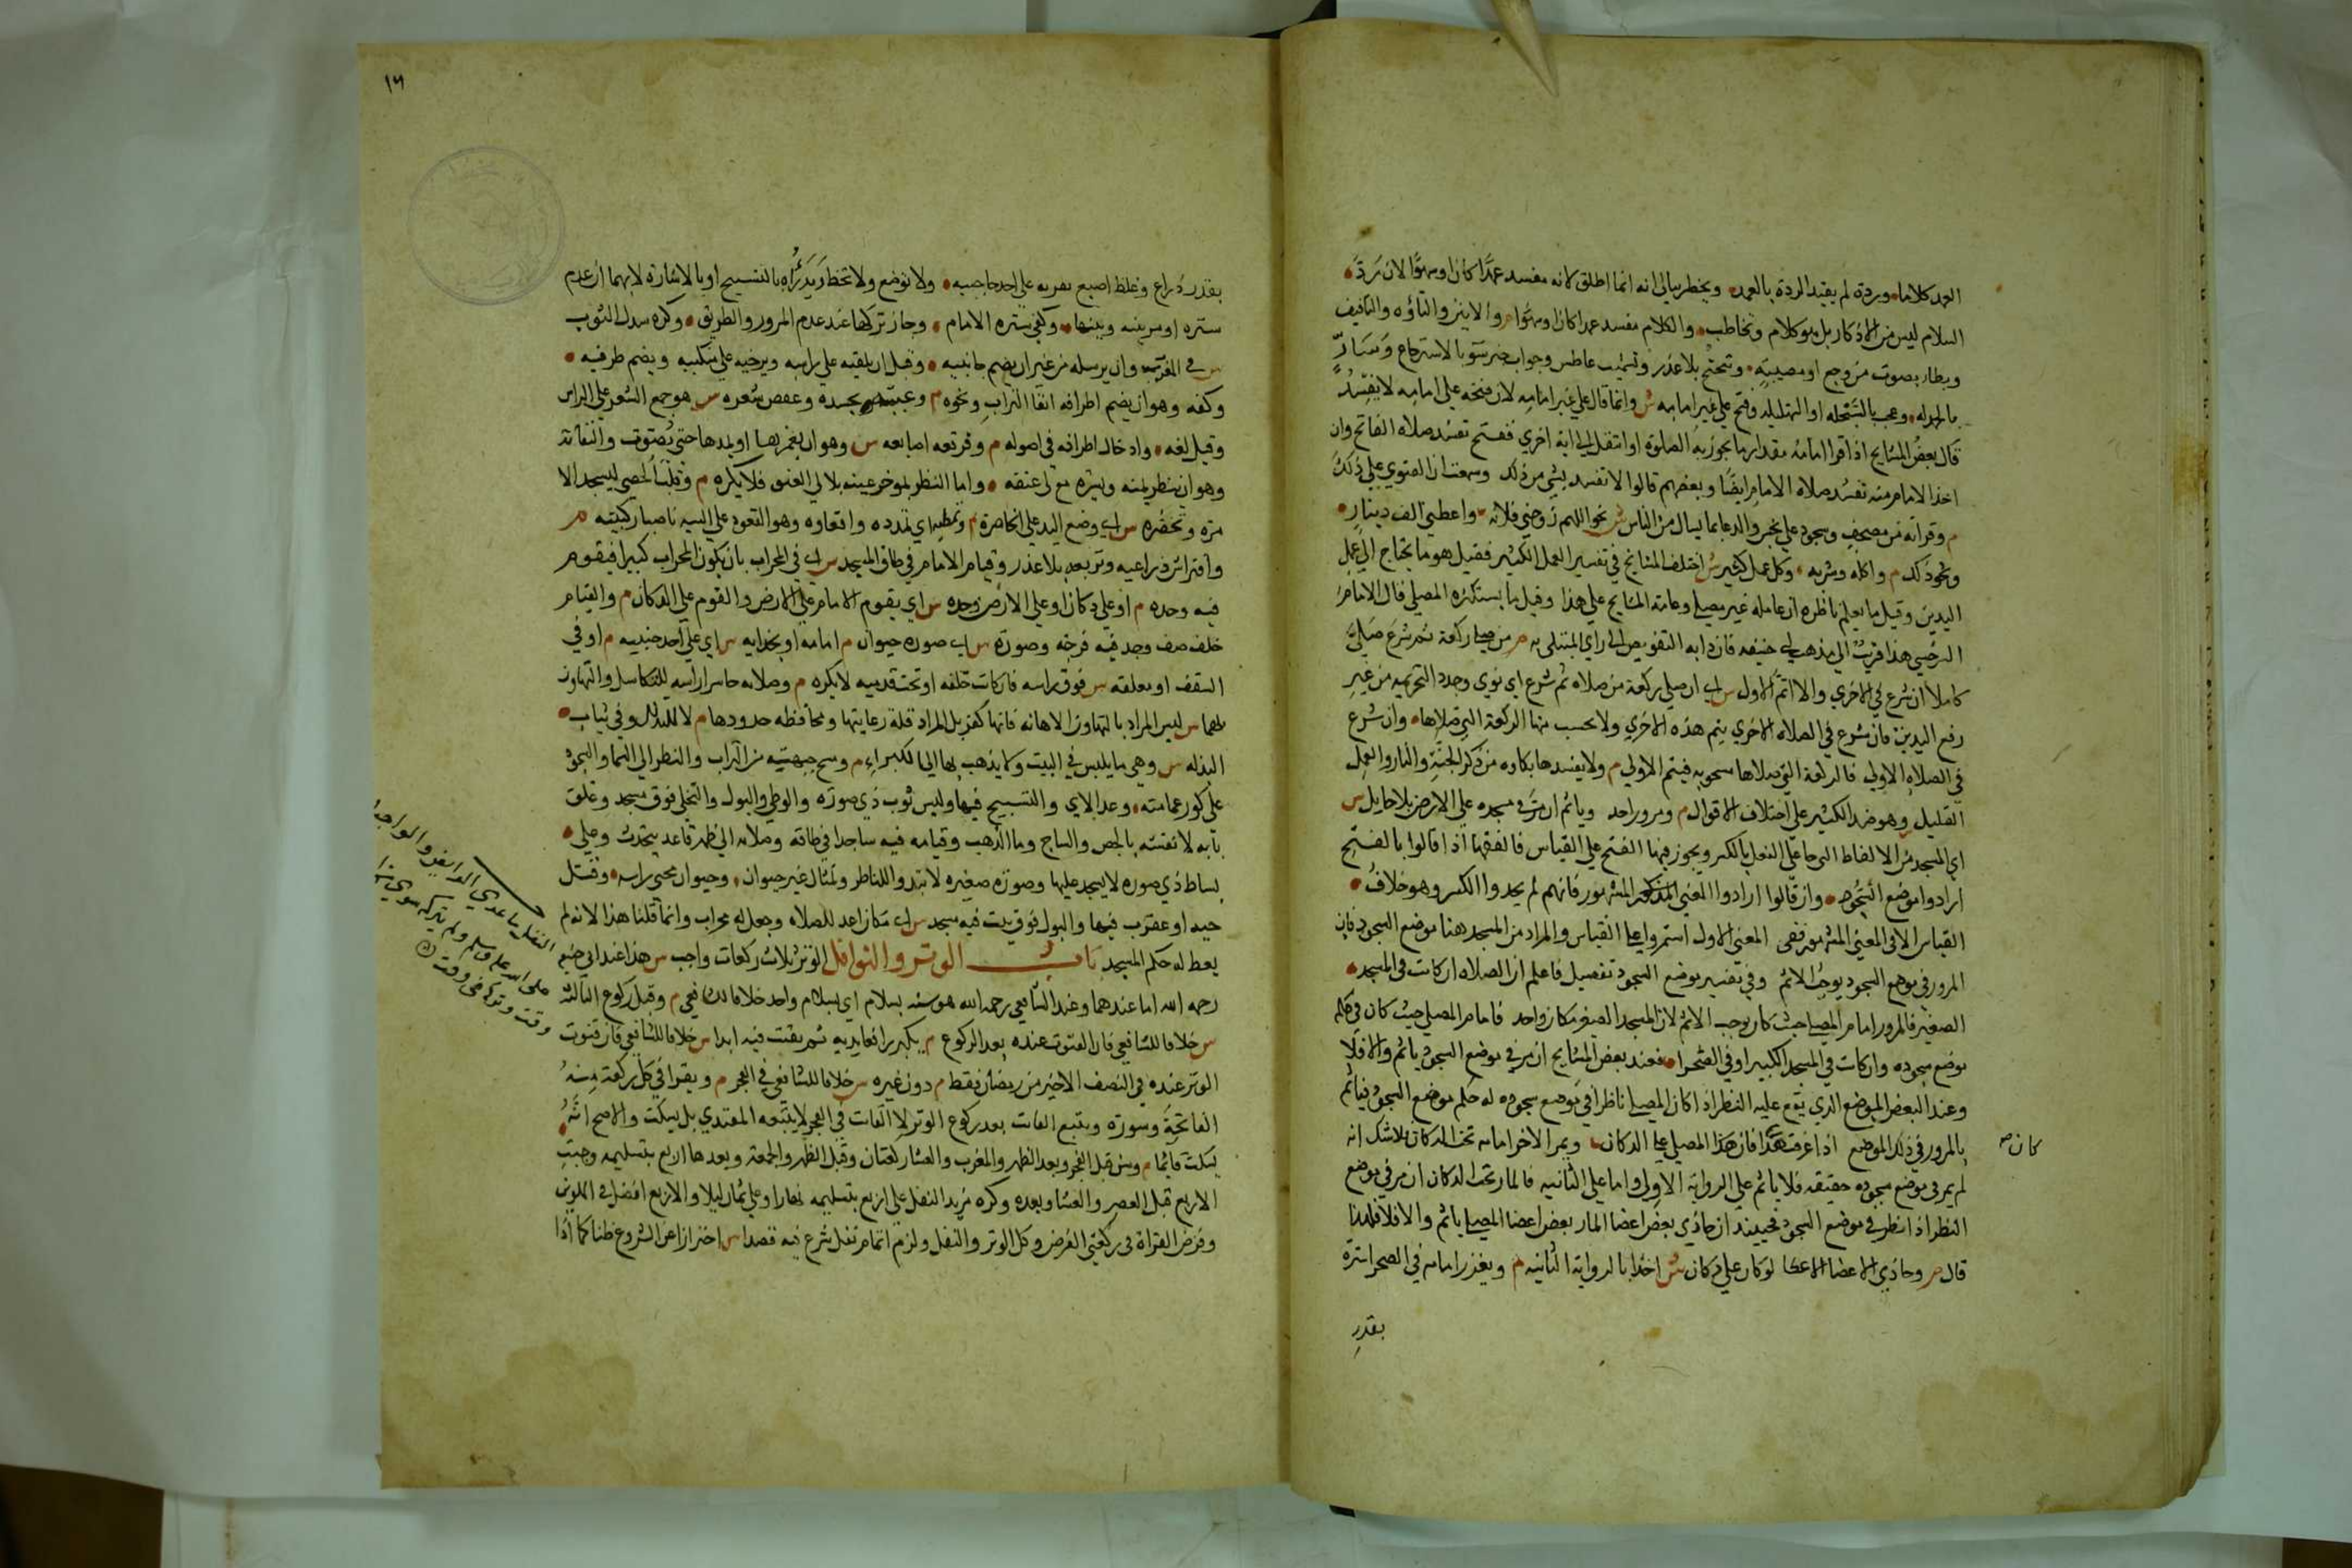 العمد كلاما وردة لم يقيد الردة بالعمد ويخطر ببالي انه انما اطلق لانه مفسد عمدا كان او سهوا لان رد
السلام ليس من الاذكار بل هو كلام وتخاطب والكلام مفسد عمدا كان او سهوا م والانين والتأوه والتافيف
وبكا بصوت من وجع او مصيبة وتنحنح بلا عذر وتشميت عاطس وجواب خبر سوء بالاسترجاع وسار
بالحمدلة وعجب بالسبحلة او الهيللة وفتح على غير امامه ش وانما قال على غير امامه لان فتحه على امامه لا يفسد
قال بعض المشايخ اذا قرا امامه مقدار ما يجوز به الصلوة او انتقل الى اية اخري ففتح تفسد صلاة الفاتح وان
اخذ الامام منه تفسد صلاة الامام ايضا وبعضهم قالوا لا تفسد بشي من ذلك وسمعت ان الفتوي على ذلك
م وقراته من مصحف وسجود على نجس والدعا بما يسال من الناس ش نحو اللهم زوجني فلانة واعطني الف دينار
ونحو ذلك م واكله وشربه وكل عمل كثير ش اختلف المشايخ في تفسير العمل الكثير فقيل هو ما يحتاج الى عمل
اليدين وقيل ما يعلم ناظره ان عامله غير مصلي وعامة المشايخ على هذا وقيل ما يستكثره المصلي قال الامام
السرخسي هذا اقرب الى مذهب ابي حنيفه فان دابه التفويض الى راي المبتلى به م من صلي ركعة ثم شرع صلي
كاملا ان شرع في الاخري والا اتم الاول س اي ان صلي ركعة من صلاة ثم شرع اي نوي وجدد التحريمه من غير
رفع اليدين فان شرع في الصلاة الاخري يتم هذه الاخري ولا تحسب منها الركعة التي صلاها وان شرع
في الصلاة الاولي فالركعة التي صلاها محسوبه فيتم الاولي م ولا يفسدها بكاوه من ذكر الجنة والنار والعمل
القليل وهو ضد الكثير على اختلاف الاقوال م ومرور احد وياثم ان مر في مسجده على الارض بلا حايل س
اي المسجد من الالفاظ التي جا على المفعل بالكسر ويجوز فيها الفتح على القياس فالفقها اذا قالوا بالفتح
ارادوا موضع السجود وان قالوا ارادوا المعني المشهور فانهم لم يجدوا الكسر وهو خلاف
القياس الا في المعني المشهور ففي المعني الاول استمروا على القياس والمراد من المسجد هنا موضع السجود فان
المرور في موضع السجود يوجب الاثم وفي تفسير موضع السجود تفصيل فاعلم ان الصلاة ان كانت في المسجد
الصغير فالمرور امام المصلي حيث كان يوجب الاثم لان المسجد الصغير مكان واحد فامام المصلي حيث كان في حكم
موضع سجوده وان كانت في المسجد الكبير او في الصحرا فعند بعض المشايخ ان مر في موضع السجود ياثم والا فلا
وعند البعض الموضع الذي يقع عليه النظر اذا كان المصلي ناظرا في موضع سجوده له حكم موضع السجود فياثم
بالمرور في ذلك الموضع اذا عرفت هذا فان المصلي على الدكان ويمر الاخر امامه تحت الدكان فلا شك انه
كان صح
لم يمر في موضع سجوده حقيقه فلا ياثم على الرواية الاولي واما على الثانيه فالمار تحت الدكان ان مر في موضع
النظر اذا نظر في موضع السجود فحينئذ ان حاذي بعض اعضا المار بعض اعضا المصلي ياثم والا فلا فلهذا
قال م وحاذي الاعضا الاعضا لو كان على دكان ش اخذا بالرواية الثانيه م ويغرز امامه في الصحرا سترة
بقدر
١٦
بقدر ذراع وغلظ اصبع بقربه على احد حاجبيه ولا توضع ولا تخط ويدرؤه بالتسبيح او بالاشارة لا بهما ان عدم
سترة او مر بينه وبينها وكفي سترة الامام وجاز تركها عند عدم المرور والطريق وكره سدل الثوب
س في المغرب وان يرسله من غير ان يضم جانبيه وقيل ان يلقيه على راسه ويرخيه على منكبيه ويضم طرفيه
وكفه وهو ان يضم اطرافه اتقا التراب ونحوه م وعبثه به وبجسده وعقص شعره س هو جمع الشعر على الراس
وقيل لفه وادخال اطرافه في اصوله م وفرقعة اصابعه س وهو ان يغمزها او يمدها حتى تصوت والتفاته
وهو ان ينظر يمنه ويسره مع لي عنقه واما النظر بموخر عينه بلا لي العنق فلا يكره م وقلب الحصي ليسجد الا
مرة وتخصره س اي وضع اليد على الخاصرة م وتمطيه اي تمدده واقعاوه وهو القعود على اليتيه ناصبا ركبتيه م
وافتراش ذراعيه وتربعه بلا عذر وقيام الامام في طاق المسجد س اي في المحراب بان يكون المحراب كبيرا فيقوم
فيه وحده م او على دكان او على الارض وحده س اي يقوم الامام على الارض والقوم على الدكان م والقيام
خلف صف وجد فيه فرجة وصورة س اي صورة حيوان م امامه او بحذايه س اي على احد جنبيه م او في
السقف او معلقة س فوق راسه فان كانت خلفه او تحت قدميه لا يكره م وصلاته حاسرا راسه للتكاسل والتهاون
بها س ليس المراد بالتهاون الاهانه فانها كفر بل المراد قلة رعايتها ومحافظه حدودها م لا للتذلل وفي ثياب
البذلة س وهي ما يلبس في البيت ولا يذهب بها الى الكبراء م ومسح جبهته من التراب والنظر الى السما والسجود
على كور عمامته وعد الاي والتسبيح فيها ولبس ثوب ذي صورة والوطي والبول والتخلي فوق مسجد وغلق
بابه لا نقشه بالجص والساج وما الذهب وقيامه فيه ساجدا في طاقه وصلاته الى ظهر قاعد يتحدث وعلى
بساط ذي صورة لا يسجد عليها وصورة صغيره لا تبدو للناظر وتمثال غير حيوان وحيوان محي راسه وقتل
حية او عقرب فيها والبول فوق بيت فيه مسجد س اي مكان اعد للصلاة وجعل له محراب وانما قلنا هذا لانه لم
يعط له حكم المسجد باب الوتر والنوافل الوتر ثلاث ركعات واجب س هذا عند ابي حنيفه
رحمه الله اما عندهما وعند الشافعي رحمه الله هو سنه بسلام اي بسلام واحد خلافا للشافعي م وقبل ركوع الثالثة
س خلافا للشافعي فان القنوت عنده بعد الركوع م يكبر رافعا يديه ثم يقنت فيه ابدا س خلافا للشافعي فان قنوت
الوتر عنده في النصف الاخير من رمضان فقط م دون غيره س خلافا للشافعي في الفجر م ويقرا في كل ركعة منه
الفاتحة وسورة ويتبع القانت بعد ركوع الوتر لا القانت في الفجر لا يتبعه المقتدي بل يسكت والاصح انه
يسكت قائما م وسن قبل الفجر وبعد الظهر والمغرب والعشا ركعتان وقبل الظهر والجمعة وبعدها اربع بتسليمه وحبب
الاربع قبل العصر والعشا وبعده وكره مزيد النفل على اربع بتسليمه نهارا وعلى ثمان ليلا والاربع افضل في الملوين
وفرض القراة في ركعتي الفرض وكل الوتر والنفل ولزم اتمام نفل شرع فيه قصدا س احترازا عن الشروع ظنا كما اذا
النفل ما عدي الفرايض والواجبات
صلى الله عليه وسلم ولم يتركه سوي
وقت وتركه في وقت